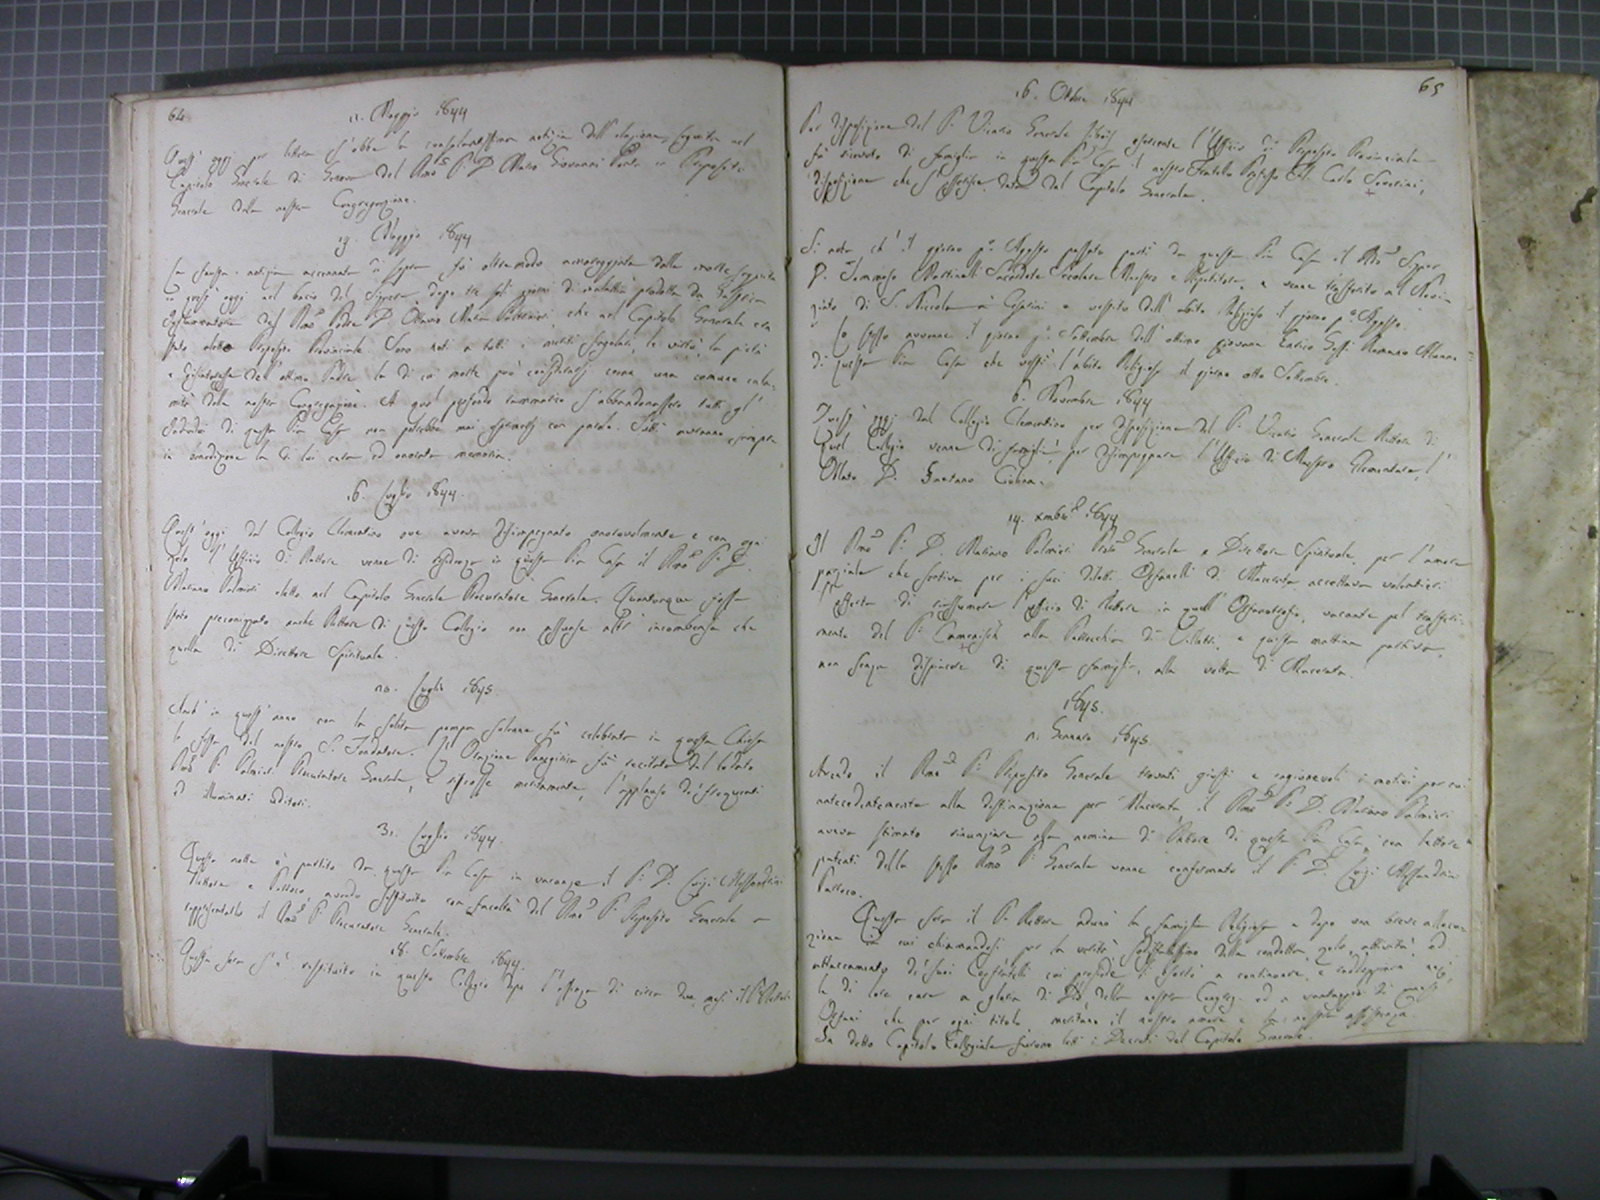 64
11. Maggio 1844
Quest'oggi per lettera s'ebbe la consolantissima notizia dell'elezione seguita nel
Capitolo Generale di Genova del Rmo P. D. Marco Giovanni Ponta in Preposito
Generale della nostra Congregazione.
Maggio 1844
La fausta notizia accennata di sopra fù oltremodo amareggiata dalla morte seguita
quest'oggi nel bacio del Signore dopo tre soli giorni di malattia prodotta da
infiammatoria del Rmo Padre D. Ottavio Maria Paltrinieri, che nel Capitolo Generale era
stato eletto Preposito Provinciale. Sono noti a tutti i meriti singolari, le virtù, la pietà
e del ottimo Padre la di cui morte può considerarsi come una comune cala-
mità della nostra Congregazione. A qual profondo rammarico s'abbandonassero tutti gl'
Individui di questa Pia Casa non potrebbe mai esprimersi con parole. Tutti avranno sempre
in benedizione la di lui cara ed onorata memoria.
16. Luglio 1844.
Quest'oggi dal Collegio Clementino ove aveva disimpegnato onorevolmente e con ogni
zelo l'Uffizio di Rettore venne di residenza in questa Pia Casa il Rmo P. D.
Mariano Palmieri eletto nel Capitolo Generale Procuratore Generale. Quantunque fosse
stato preconizzato anche Rettore di questo Collegio non assunse altr'incombenza che
quella di Direttore Spirituale.
20. Luglio 1845.
Anch'in quest'anno con la solita pompa solenne fù celebrata in questa Chiesa
la festa del nostro S. Fondatore. L'Orazione Panegirica fù recitata dal lodato
Rmo P. Palmieri Procuratore Generale, e riscosse meritamente l'applauso de' frequenti
ed illuminati uditori.
31. Luglio 1844.
Questa notte è partito da questa Pia Casa in vacanze il P. D. Luigi Alessandrini
Rettore e Parroco avendo sostituito con facoltà del Rmo P. Preposito Generale a
rappresentarlo il Rmo P. Procuratore Generale.
18. Settembre 1844.
Questa sera s'è restituito in questo Collegio dopo l'assenza di circa due mesi il P. Rettore
65
16. Ottobre 1844
Per disposizione del P. Vicario Generale esercente l'Uffizio di Preposito Provinciale
fù ricevuto di famiglia in questa Pia Casa il nostro Fratello Professo Carlo Severini,
disposizione che s'asserisce data dal Capitolo Generale.
Si nota ch'il giorno po. Agosto passato partì da questa Pia Casa il Rdo Signor
D. Tommaso Martinelli Sacerdote Secolare Maestro e Ripetitore, e venne trasferito al Novi-
ziato di S. Niccola a Cesarini e vestito dell'abito Religioso il giorno po. Agosto.
Lo stesso avvenne il giorno po. Settembre dell'ottimo giovane Enrico Gessi Romano Alunno
di questa Pia Casa che vestì l'abito Religioso il giorno otto Settembre.
6. Novembre 1844
Quest'oggi dal Collegio Clementino per disposizione del P. Vicario Generale Rettore di
quel Collegio venne di famiglia, per disimpegnare l'Uffizio di Maestro Elementare, l'
Oblato D. Gaetano
14. Xmbre 1844
Il Rmo P. D. Mariano Palmieri Prore Generale e Direttore Spirituale, per l'amore
parziale che sentiva per i suoi diletti Orfanelli di Macerata accettava volentieri
l'offerta di riassumere l'officio di Rettore in quell'Orfanotrofio, vacante pel trasferi-
mento del P. Camerisch alla Parrocchia di Velletri, e questa mattina partiva,
non senza dispiacere di questa famiglia, alla volta di Macerata.
1845.
Gennaro 1845.
Avendo il Rmo P. Preposito Generale trovati giusti e ragionevoli i motivi per cui
antecedentemente alla destinazione per Macerata il Rmo P. D. Mariano Palmieri
aveva stimato rinunziare alla nomina di Rettore di questa Pia Casa, con lettere
patenti dello stesso Rmo P. Generale venne confermato il P. D. Luigi Alessandrini
Parroco.
Questa sera il P. Rettore adunò la famiglia Religiosa e dopo una breve allocu-
zione in cui chiamandosi per la verità soddisfattissimo della condotta, zelo, attività, ed
attaccamento de' suoi Confratelli cui presiede li esortò a continuare, e raddoppiare
la di loro cura a gloria di Dio, della nostra Congreg. ed a vantaggio di questi
Orfani che per ogni titolo meritano il nostro amore e la nostra assistenza.
In detto Capitolo Collegiale furono letti i Decreti del Capitolo Generale.